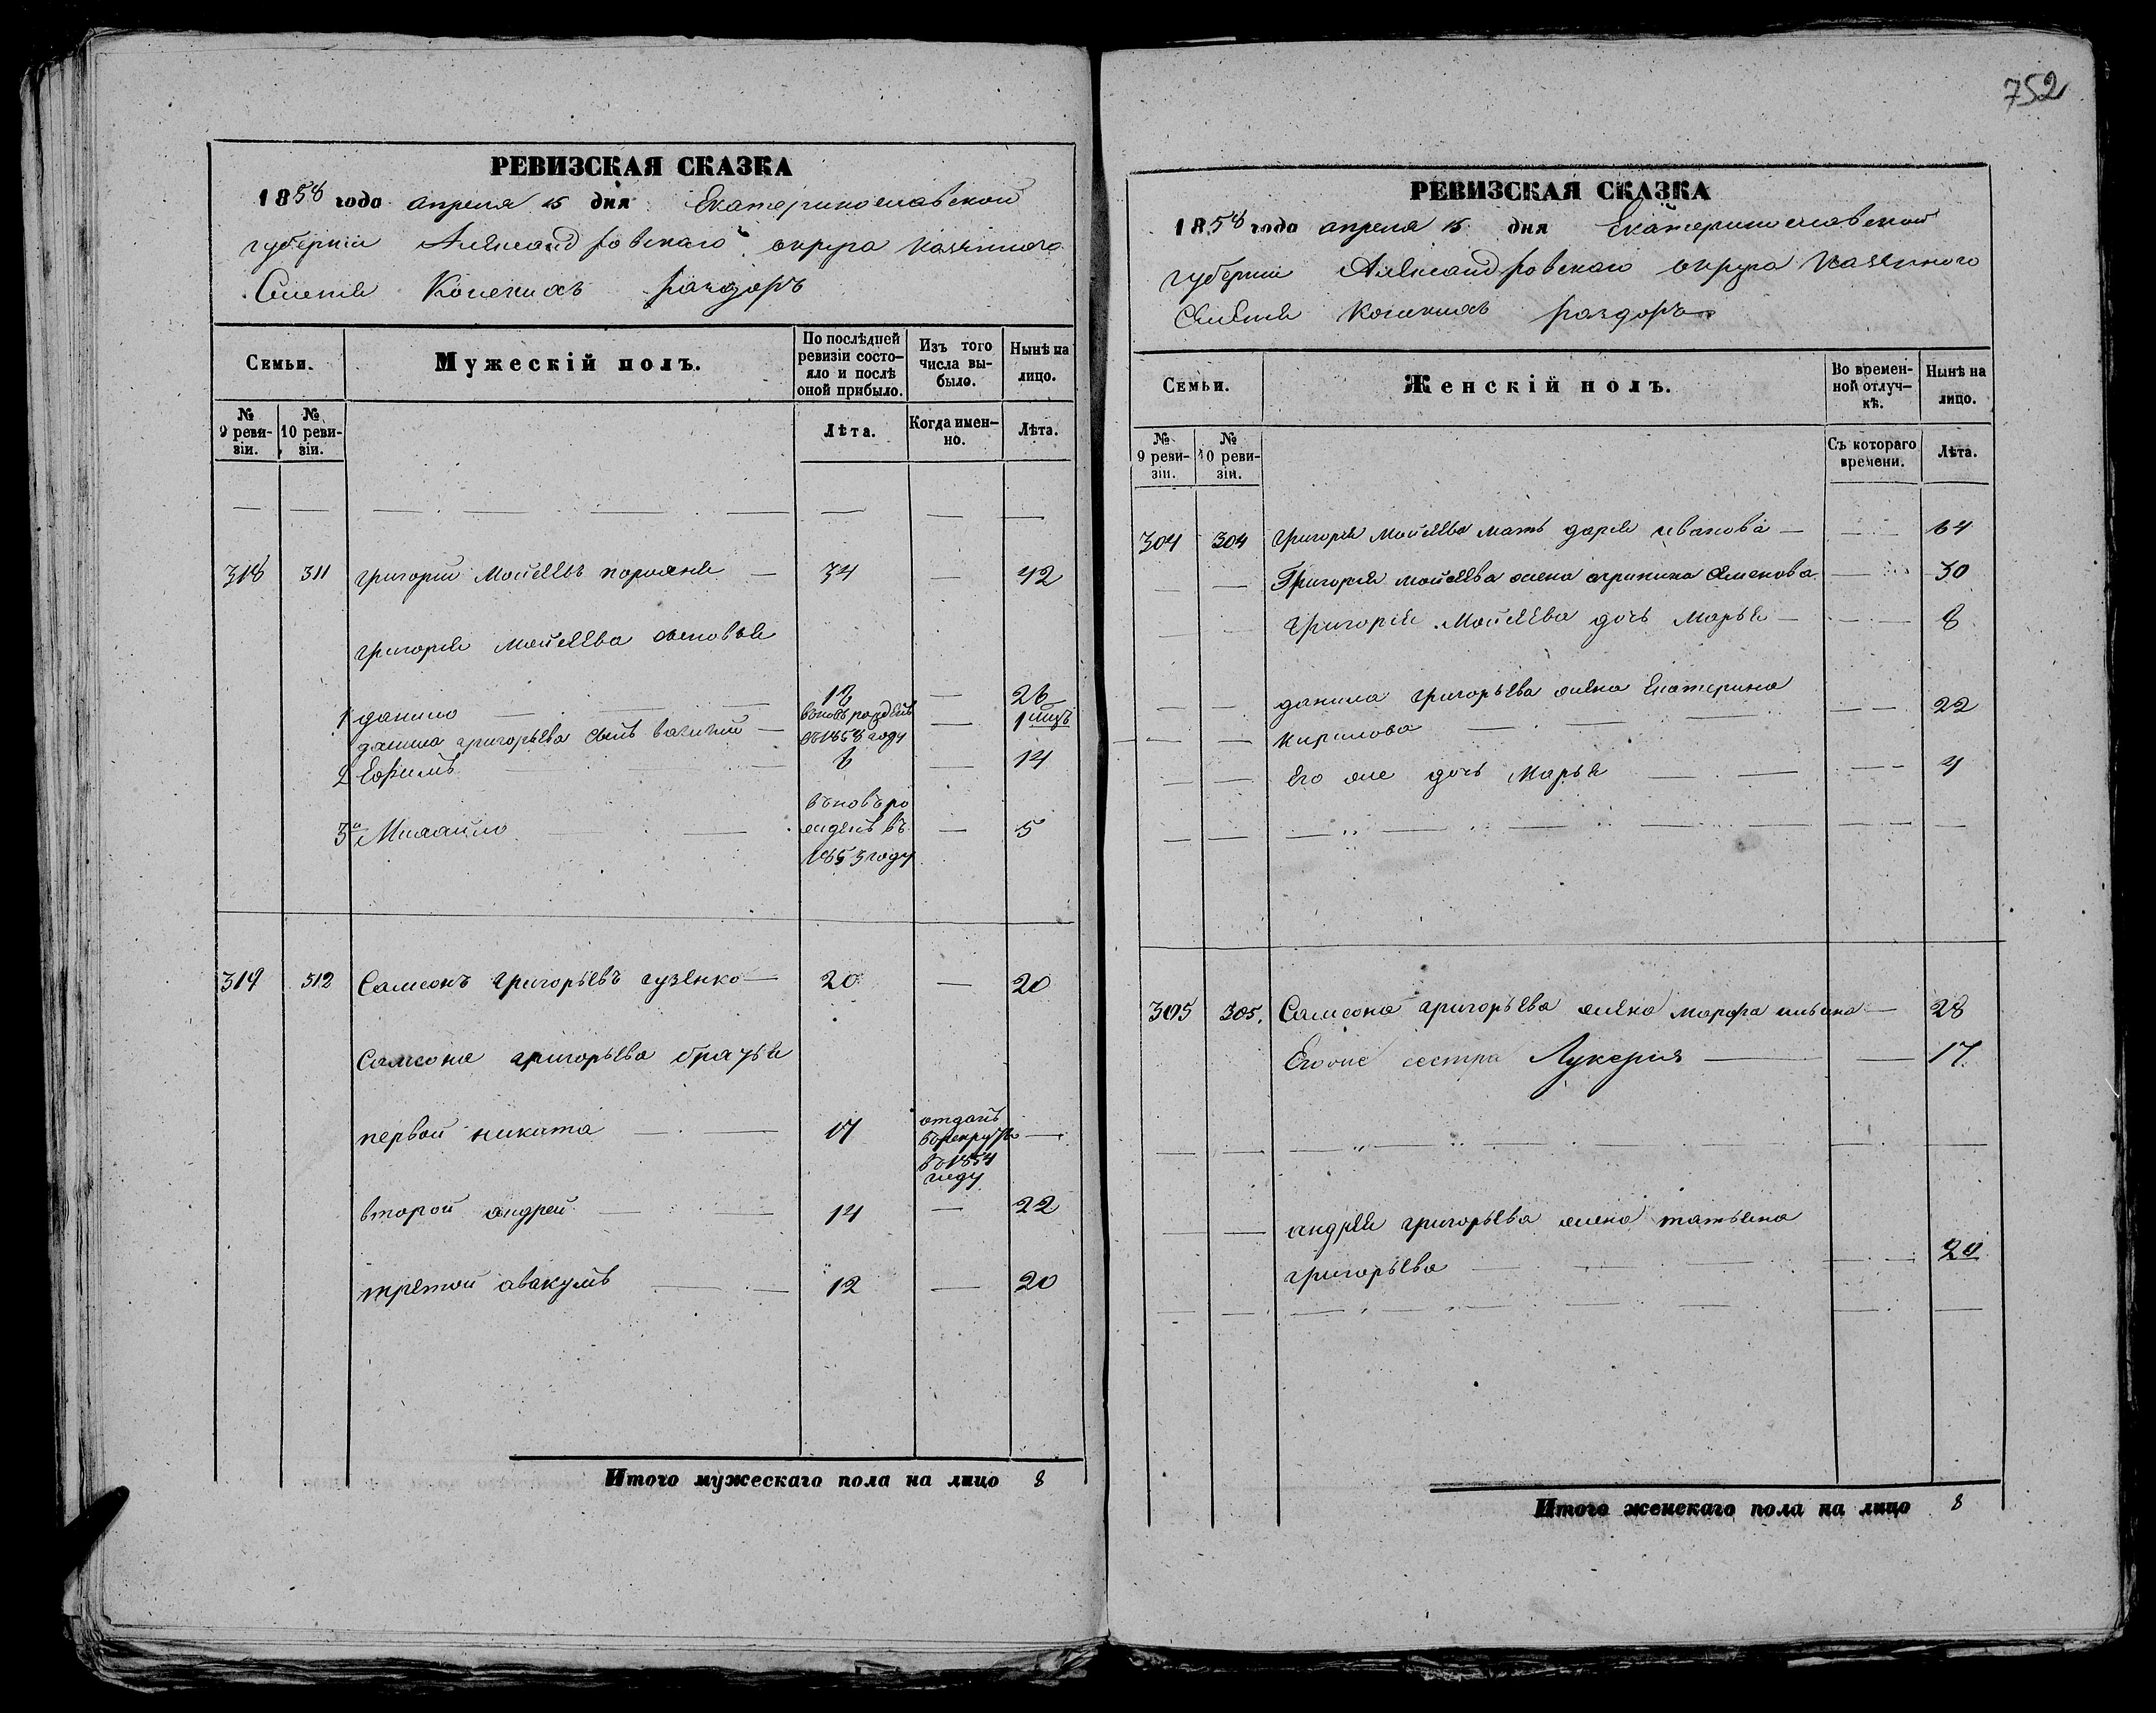 752
РЕВИЗСКАЯ СКАЗКА
1858 года апреля 15 дня Екатеринославской
губернии Александровскаго округа казенного
Селения Конскихъ раздоръ
Семьи.
Мужескій полъ.
По послѣдней ревизіи состо-
яло и послѣ оной прибыло.
Изъ того числа вы-
было.
Нынѣ на лицо.
№ 9 реви-
зіи.
№ 10 реви-
зіи.
Лѣта.
Когда имен-
но.
Лѣта.
318 311 григорий Моисеевъ 34 — 42
григория моисеева сыновья
1 данило 18 — 26
данила григорьева сынъ василий вновь рожденъ въ 1858 году — 1 мцъ
2 Ефимъ 6 — 14
3й Михайло въновь ро
жденъ въ — 5
1853 году
319 312 Самсонъ григорьевъ гузенко 20 — 20
Самсона григорьева братья
первой никита 17 отданъ
въ рекруты —
въ 1854
году
второй андрей 14 — 22
третой авакумъ 12 — 20
Итого мужескаго пола на лицо 8
РЕВИЗСКАЯ СКАЗКА
1858 года апреля 15 дня Екатеринославской
губернии Александровскаго округа казенного
Селения Конскихъ раздоръ
Семьи.
Женскій полъ.
Во времен-
ной отлуч-
кѣ.
Нынѣ на лицо.
№ 9 реви-
зіи.
№ 10 реви-
зіи.
Съ котораго времени.
Лѣта.
304 304 григория моисеева мать дария иванова — 64
Григория моисеева жена Семенова — 50
григория Моисеева дочь Марья — 8
данила григорьева жена Екатерина
кирилова 22
Его же дочь Марья 4
305 305. Самсона григорьева жена марфа ильина — 28
Его же сестра Лукерия 17
андрея григорьева жена татьяна
григорьева 20
Итого женскаго пола на лицо 8